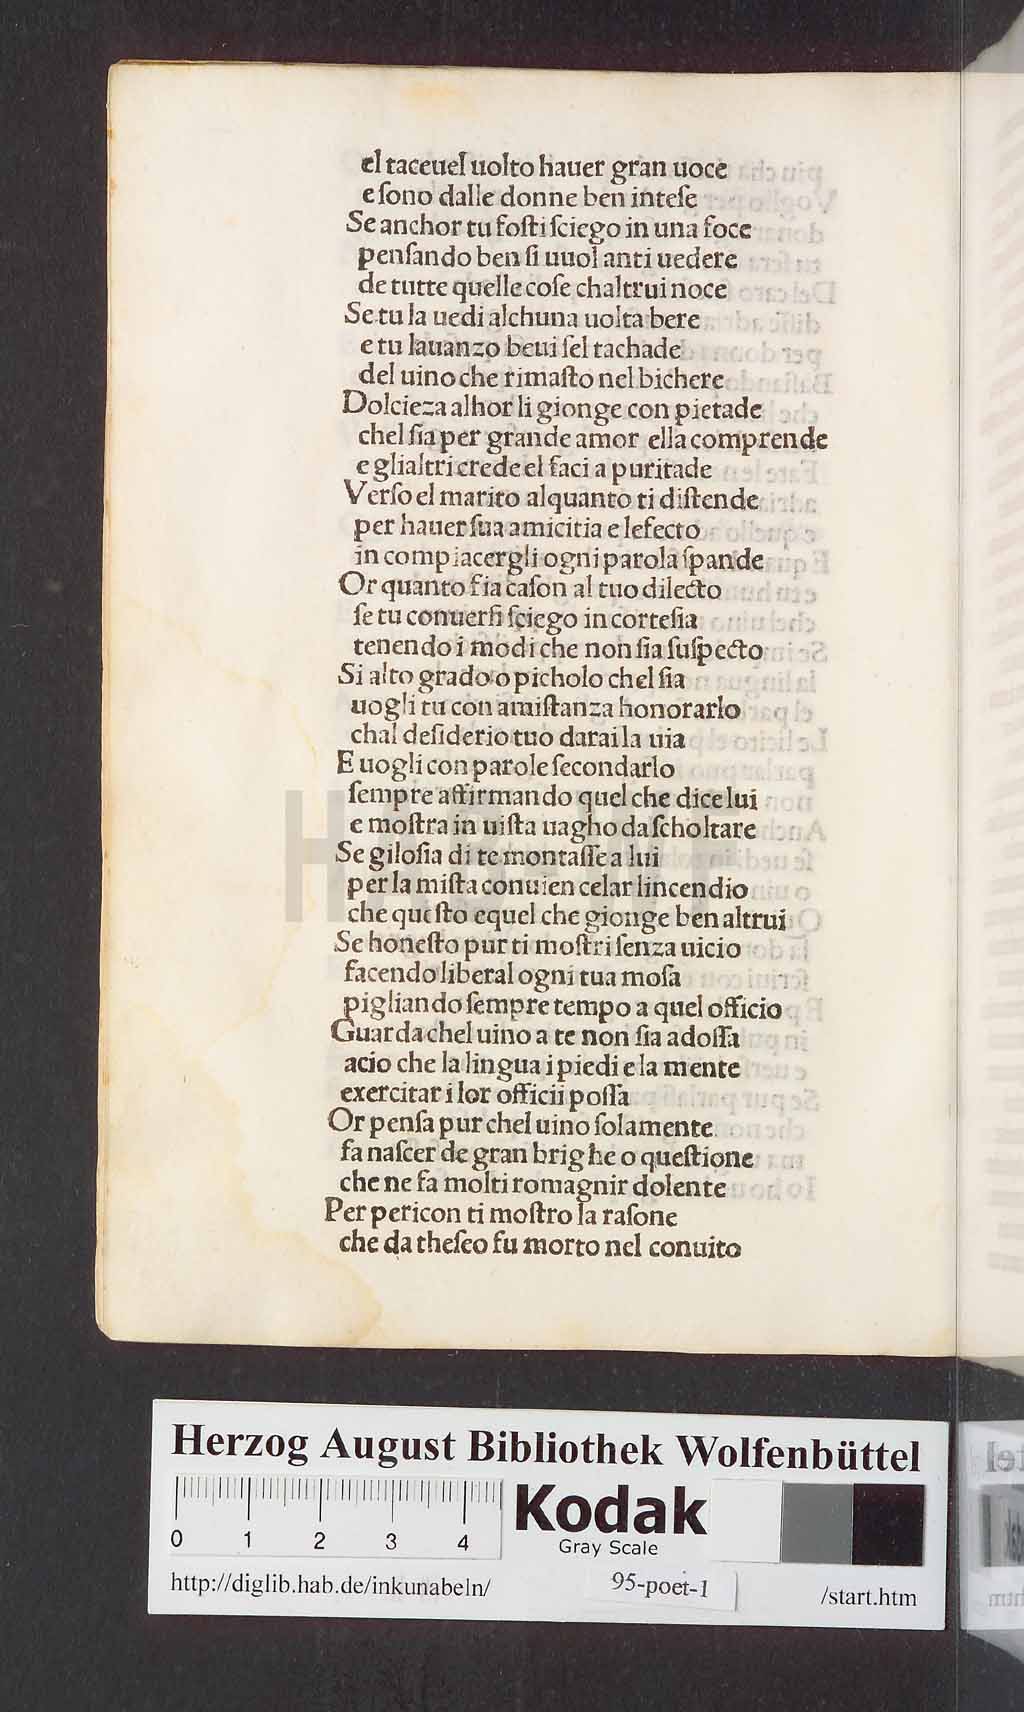 el taceuel uolto hauer gran uoce
e ſono dalle donne ben inteſe
Se anchor tu foſti ſciego in una foce
penſando ben ſi uuol anti uedere
de tutte quelle coſe chaltrui noce
Se tu la uedi alchuna uolta bere
e tu lauanzo beui ſel tachade
del uino che rimaſto nel bichere
Dolcieza alhor li gionge con pietade
chel ſia per grande amor ella comprende
e glialtri crede el faci a puritade
Verſo el marito alquanto ti diſtende
per hauer ſua amicitia e lefecto
in compiacergli ogni parola ſpande
Or quanto fia caſon al tuo dilecto
ſe tu conuerſi ſciego in corteſia
tenendo i modi che non ſia ſuſpecto
Si alto grado o picholo chel ſia
uogli tu con amiſtanza honorarlo
chal deſiderio tuo darai la uia
E uogli con parole ſecondarlo
ſempre affirmando quel che dice lui
e moſtra in uiſta uagho daſcholtare
Se giloſia di te montaſſe a lui
per la miſta conuien celar lincendio
che queſto equel che gionge ben altrui
Se honeſto pur ti moſtri ſenza uicio
facendo liberal ogni tua moſa
pigliando ſempre tempo a quel officio
Guarda chel uino a te non ſia adoſſa
acio che la lingua i piedi e la mente
exercitar i lor officii poſſa
Or penſa pur chel uino ſolamente
fa naſcer de gran brighe o queſtione
che ne fa molti romagnir dolente
Per pericon ti moſtro la raſone
che da theſeo fu morto nel conuito
HAB-WF
Herzog August Bibliothek Wolfenbüttel
0 1 2 3 4
Kodak
Gray Scale
http://diglib.hab.de/inkunabeln/ 95-poet-1 /start.htm